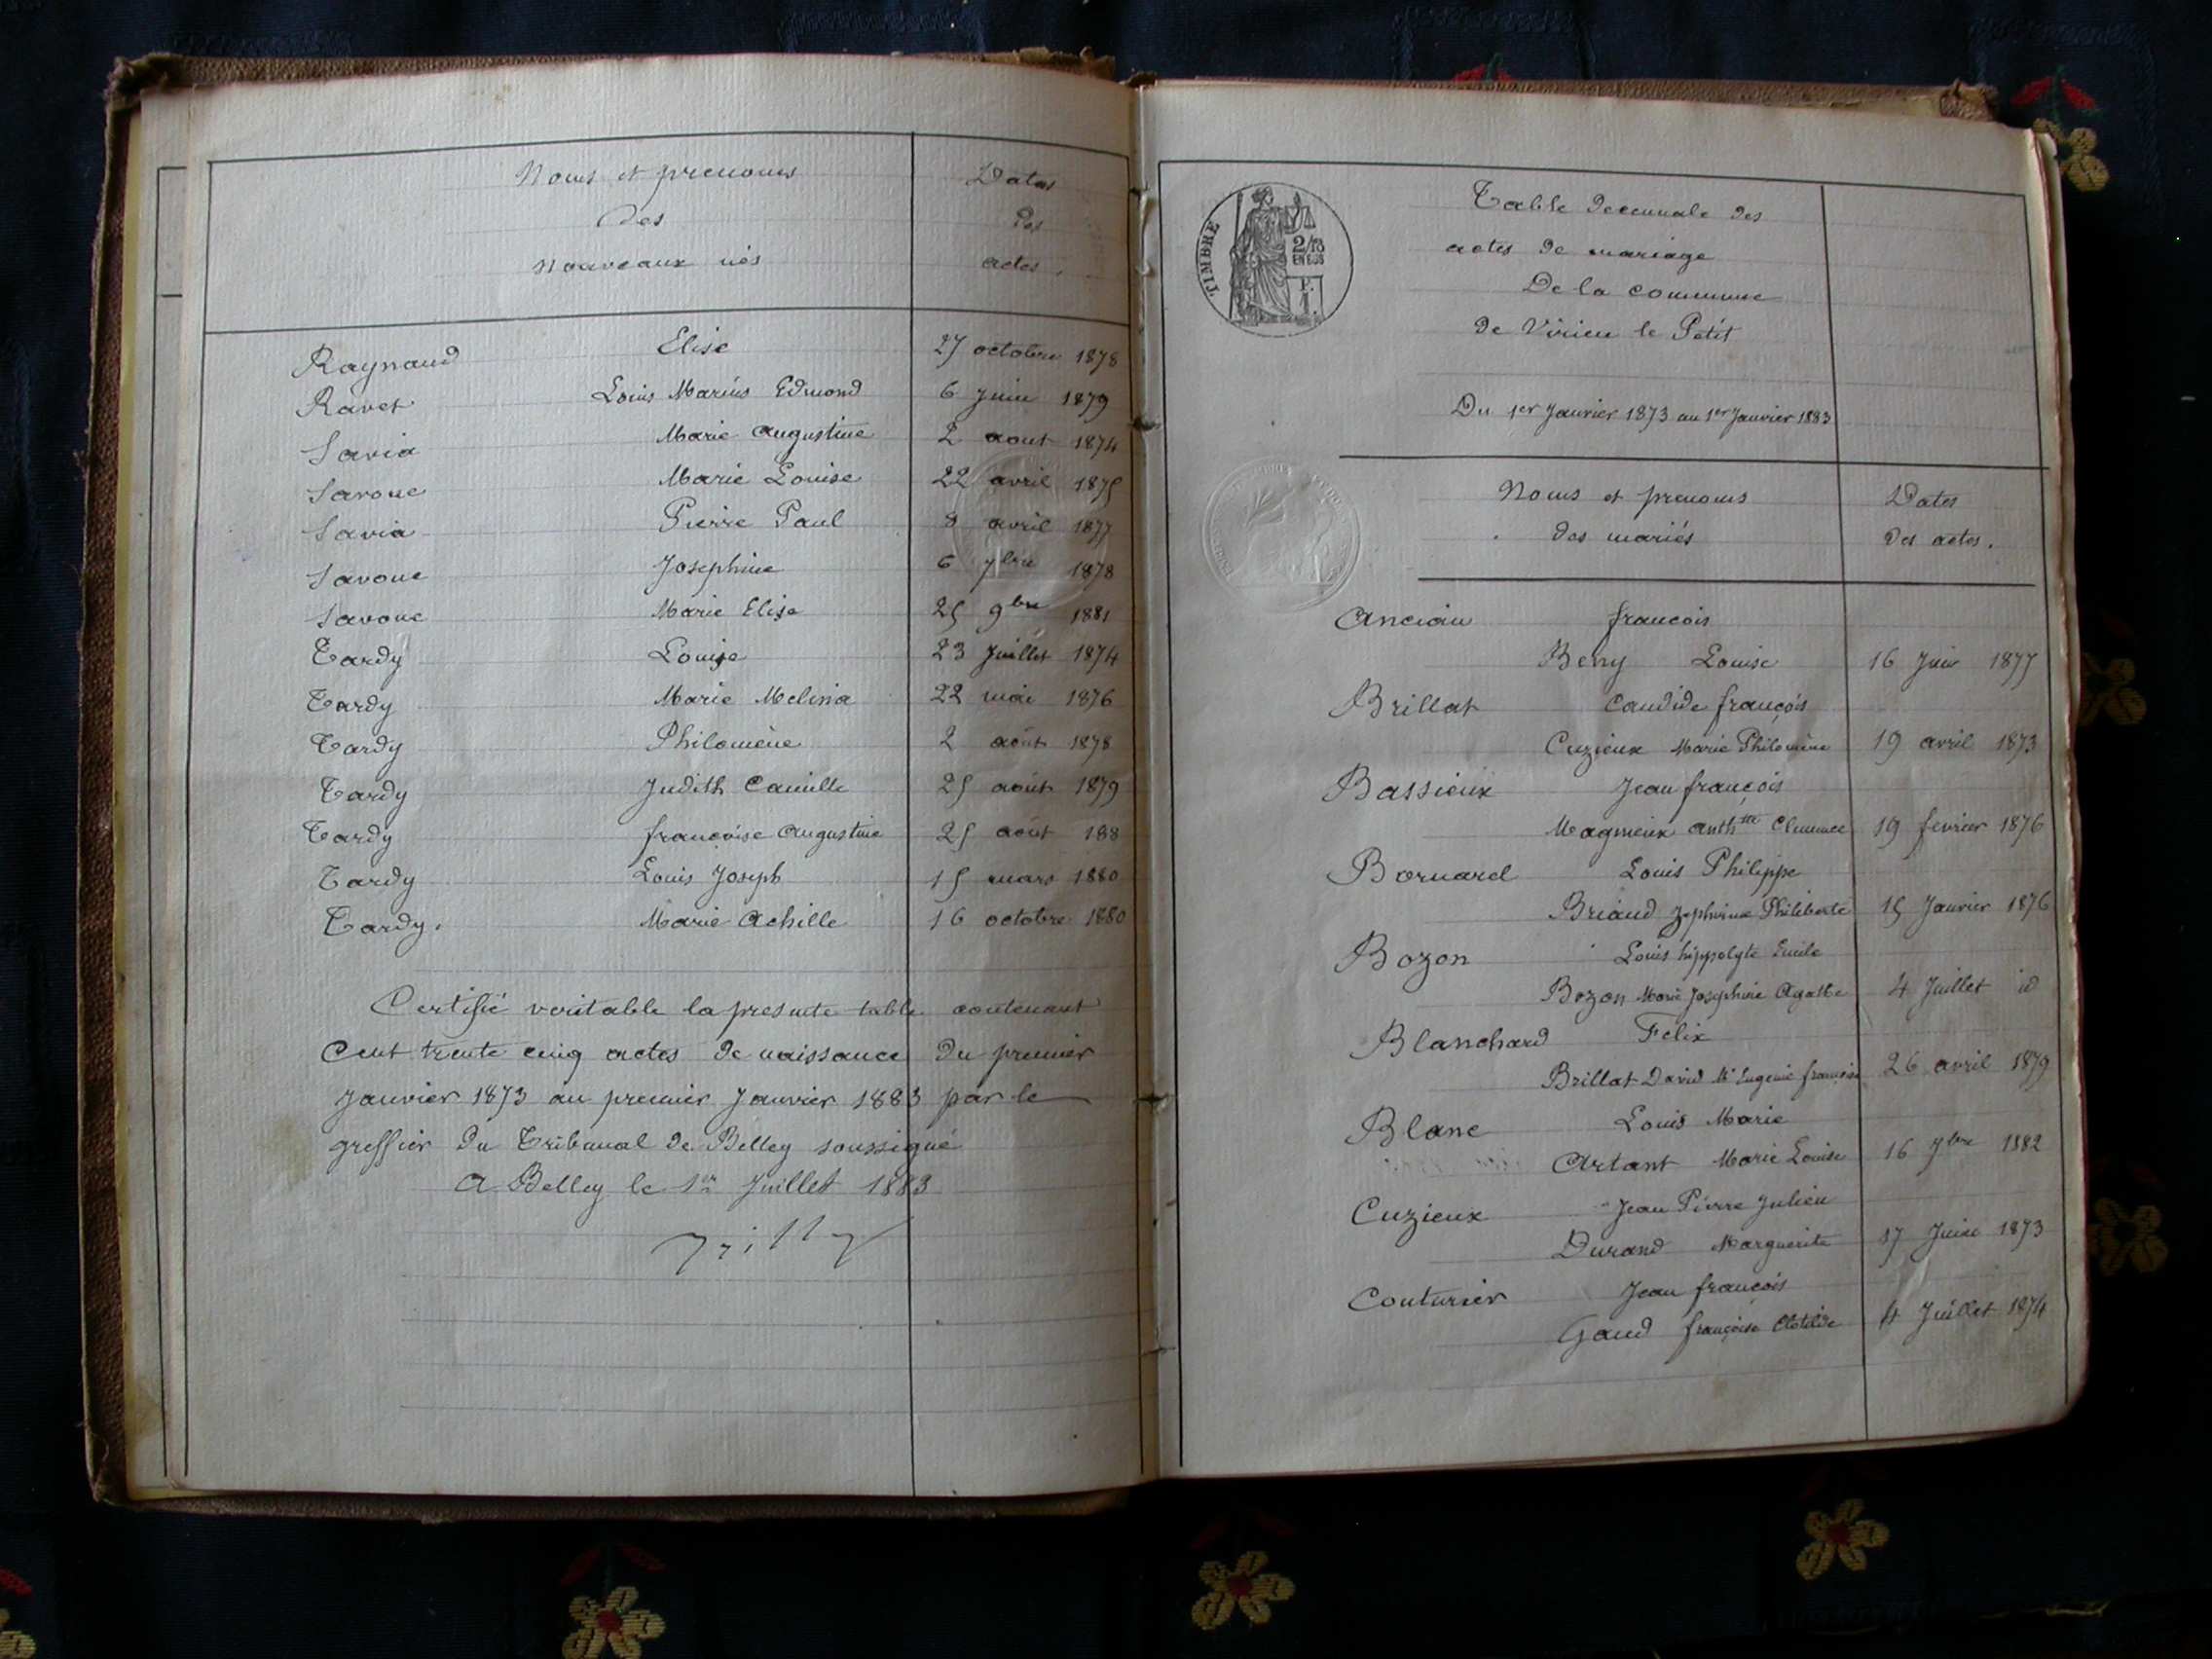 Noms et prenoms
des
nouveaux nés
Dates
des
actes.
Raynaud Elise 27 octobre 1878
Ravet Louis Marius Edmond 6 Juin 1879
Savia Marie Augustine 2 aout 1874
Savoue Marie Louise 22 avril 1875
Savia Pierre Paul 8 avril 1877
Savoue Josephine 6 7bre 1878
Savoue Marie Elise 25 9bre 1881
Tardy Louise 23 Juillet 1874
Tardy Marie Melina 22 mai 1876
Tardy Philomène 2 août 1878
Tardy Judith Camille 25 août 1879
Tardy françoise Augustine 25 août 188
Tardy Louis Joseph 15 mars 1880
Tardy. Marie Achille 16 octobre 1880
Certifié veritable la presente table contenant
Cent trente cinq actes de naissance du premier
Janvier 1873 au premier Janvier 1883 par le
greffier du Tribunal de Belley soussigné
A Belley le 1er Juillet 1883
TIMBRE
2/10
EN SUS
P.
1.
Table decennale des
actes de mariage
De la commune
de Virieu le Petit
Du 1er Janvier 1873 au 1er Janvier 1883
Noms et prenoms
des mariés
Dates
des actes.
Anciau francois
Beny Louise 16 Juin 1877
Brillat Candide françois
Cuzieux Marie Philomène 19 avril 1873
Bassieux Jean françois
Magnieux anthtte Clemence 19 fevrier 1876
Bornarel Louis Philippe
Briaud Zephirine Philiberte 15 Janvier 1876
Bozon Louis hippolyte Emile
Bozon Marie Josephine Agathe 4 Juillet id
Blanchard Felix
Brillat David Mie Eugenie françoise 26 avril 1879
Blanc Louis Marie
Artant Marie Louise 16 7bre 1882
Cuzieux Jean Pierre Julien
Durand Marguerite 17 Juin 1873
Couturier Jean françois
Gaud françoise Clotilde 4 Juillet 1874